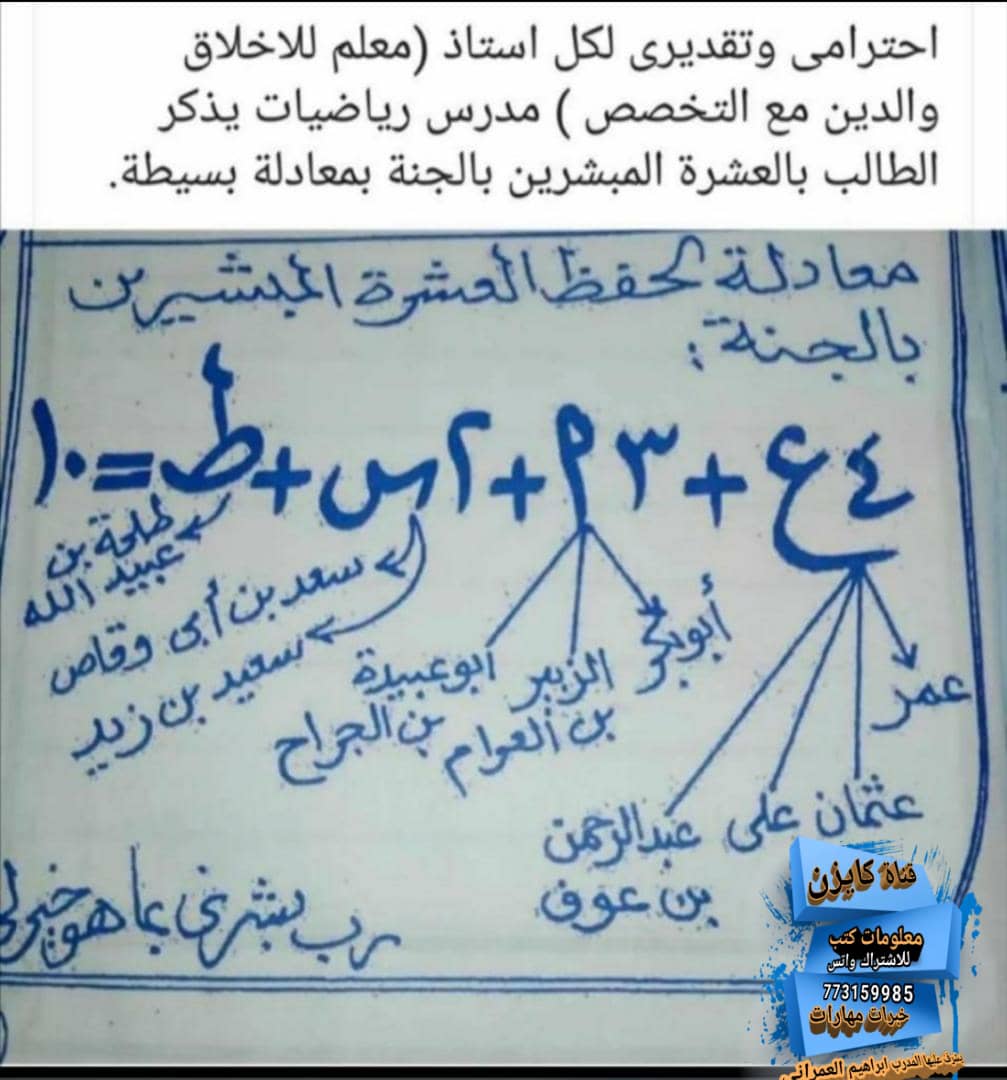 احترامى وتقديرى لكل استاذ (معلم للاخلاق
والدين مع التخصص ) مدرس رياضيات يذكر
الطالب بالعشرة المبشرين بالجنة بمعادلة بسيطة.
معادلة لحفظ العشرة المبشرين
بالجنة:
٤ع + ٣م + ٢س + ط = ١٠
عمر
عثمان
على
عبدالرحمن
بن عوف
أبوبكر
الزبير
بن العوام
ابوعبيدة
بن الجراح
سعد بن أبى وقاص
سعيد بن زيد
طلحة بن
عبيد الله
رب بشرنى بما هو خير لى
قناة كايزن
معلومات كتب
للاشتراك واتس
773159985
خبرات مهارات
يشرف عليها المدرب ابراهيم العمرانى